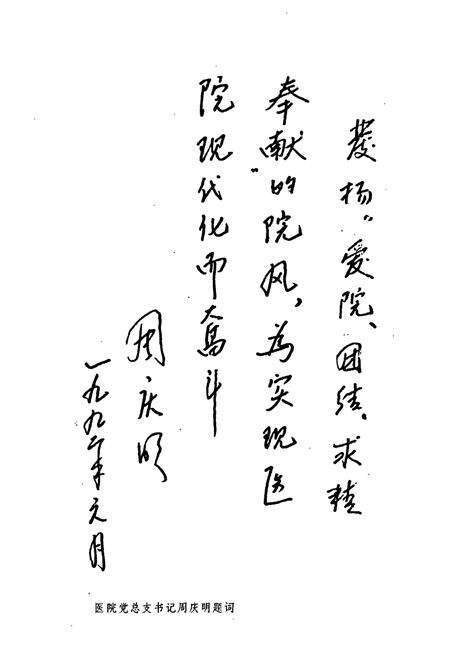 发扬“爱院、团结、求精
奉献”的院风，为实现医
院现代化而奋斗
周庆明
一九九二年元月
医院党总支书记周庆明题词